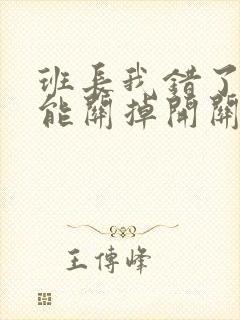 班長我錯了
能關掉開關
王傳峰